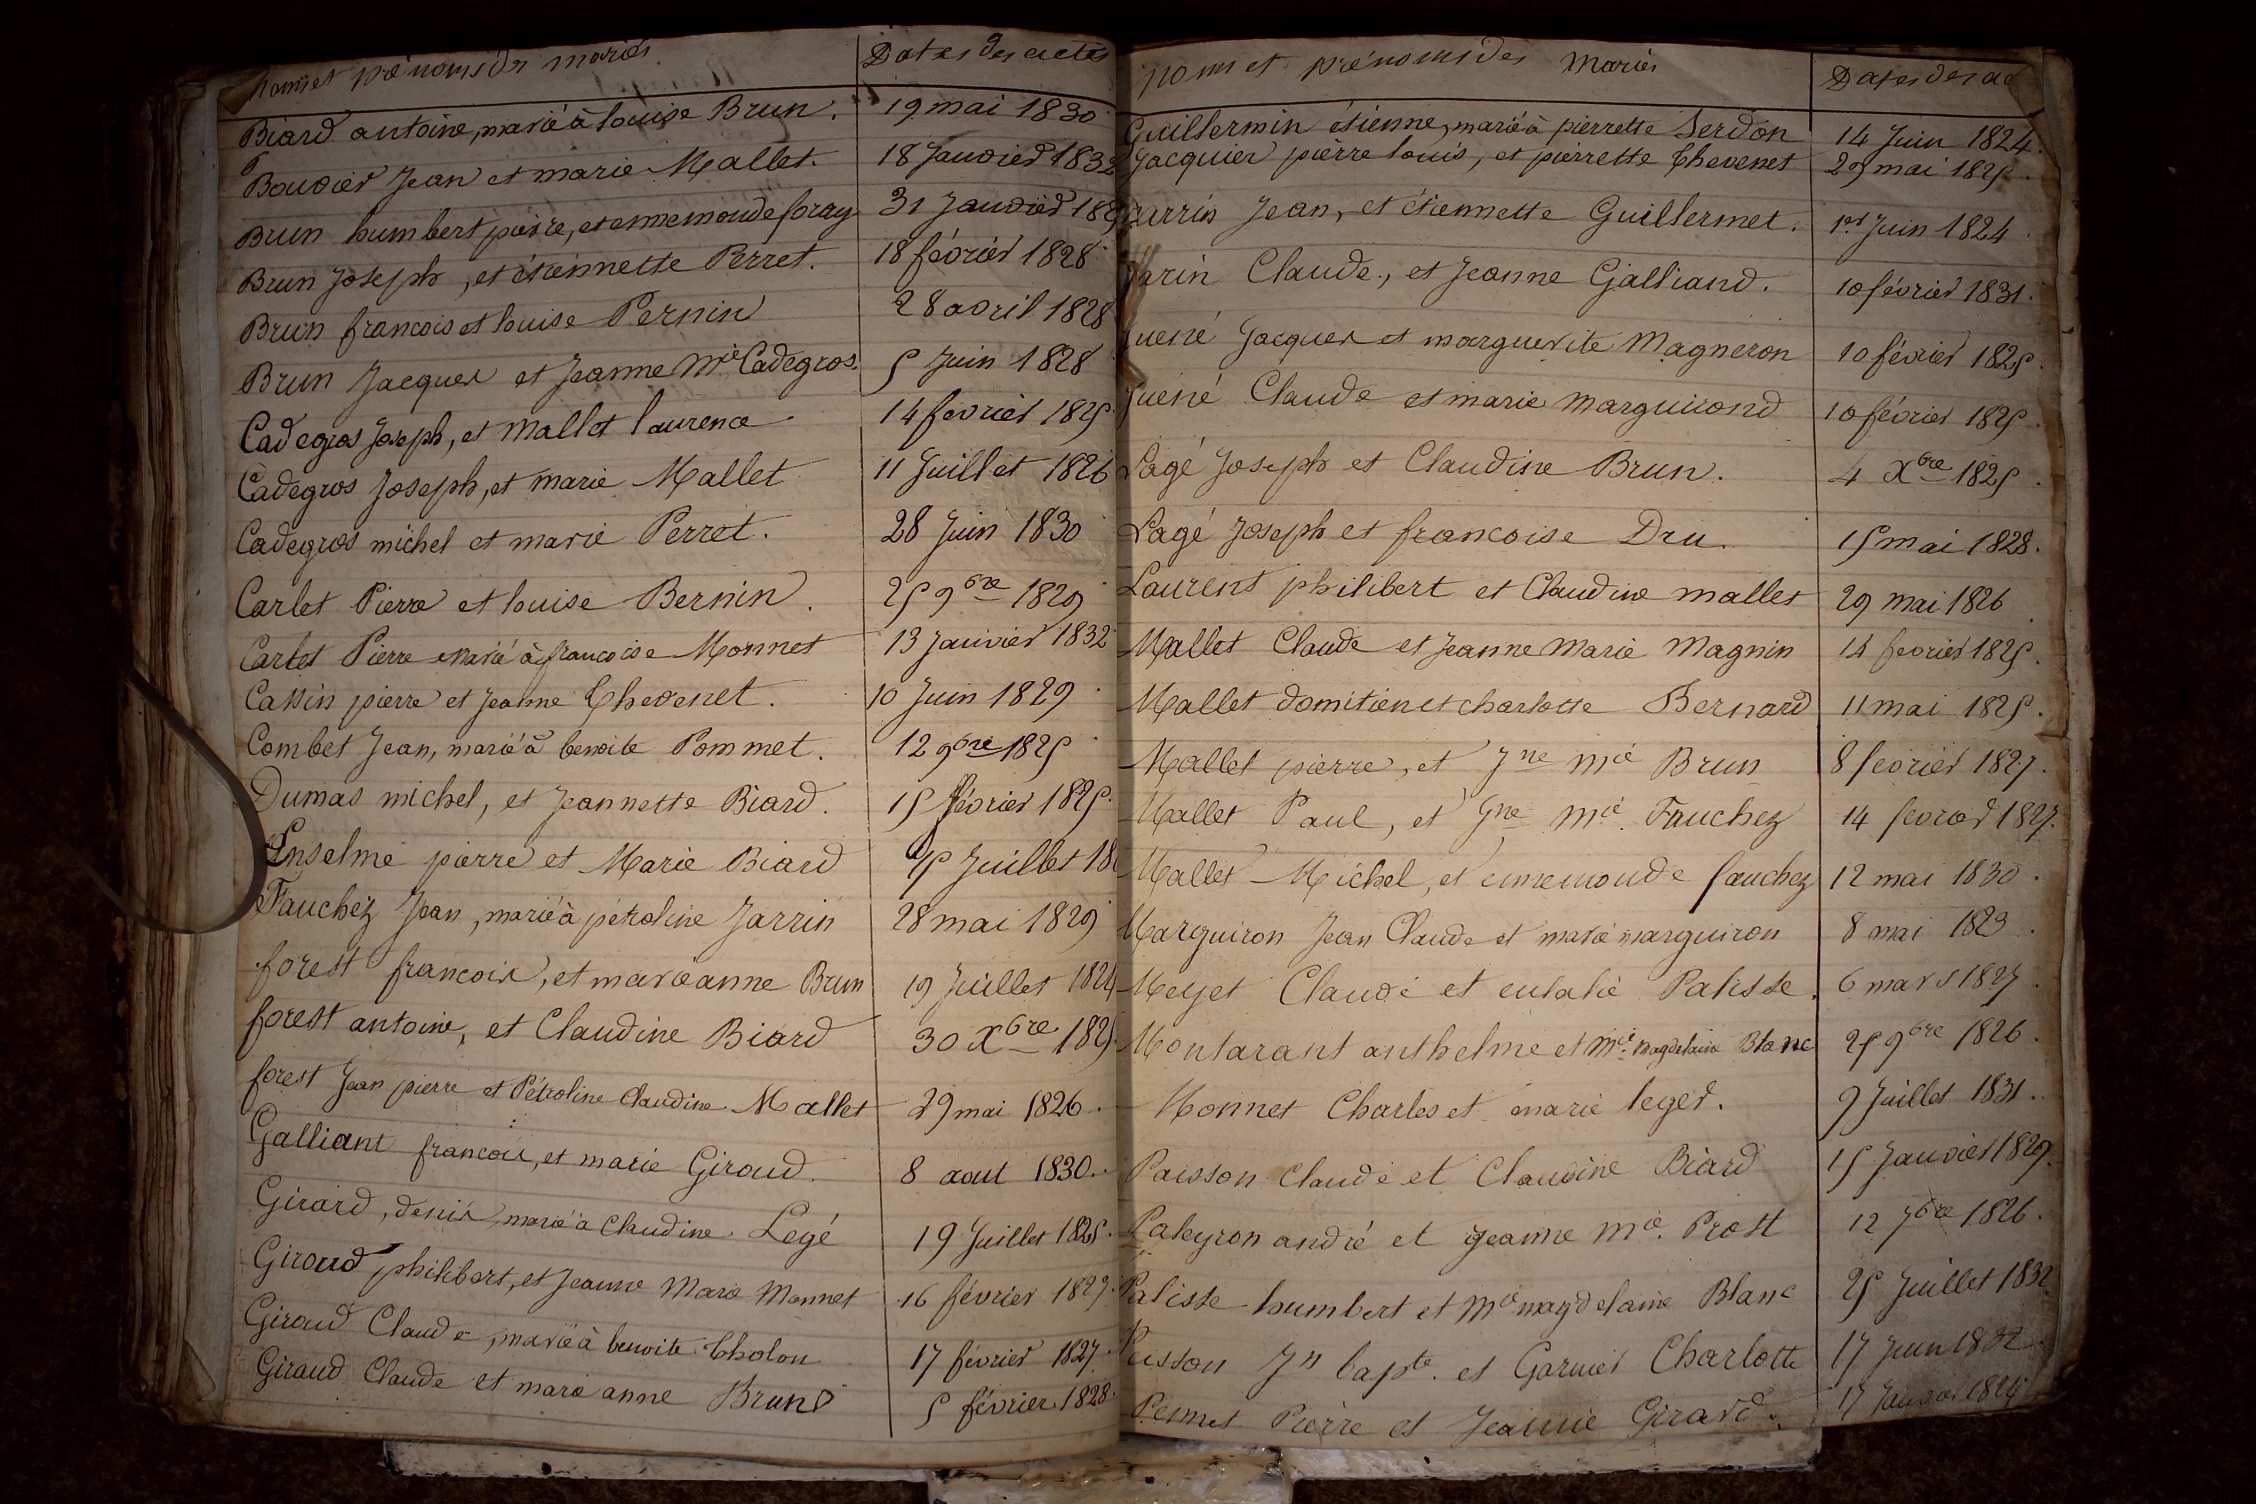 noms et prénoms des mariés Dates des actes
Biard antoine, marié à louise Brun. 19 mai 1830
Bouvier Jean et marie Mallet. 18 Janvier 1832
Brun humbert pierre, et ennemonde foray 31 Janvier
Brun Joseph, et étiennette Perret. 18 février 1828
Brun francois et louise Pernin 28 avril 1828
Brun Jacques et Jeanne Mie Cadegros. 5 Juin 1828
Cadegros Joseph, et Mallet laurence 14 fevrier 1825
Cadegros Joseph, et marie Mallet 11 Juillet 1826
Cadegros michel et marie Perret. 28 Juin 1830
Carlet Pierre et louise Bernin. 25 9bre 1829
Carlet Pierre marié à francoise Monnet 13 Janvier 1832
Cassin pierre et Jeanne Thevenet. 10 Juin 1829
Combet Jean, marié à benoite Pommet. 12 9bre 1825
Dumas michel, et Jeannette Biard. 15 février 1825.
Anselme pierre et Marie Biard Juillet
Fauchez Jean, marié à pétroline Jarrin 28 mai 1829
forest francois, et marie anne Brun 19 Juillet 1824
forest antoine, et Claudine Biard 30 Xbre 1825
forest Jean pierre et Pétroline Claudine Mallet 29 mai 1826.
Galliant francois, et marie Giroud. 8 aout 1830.
Girard, denis, marié à Claudine Legé 19 Juillet 1825.
Giroud philibert, et Jeanne Marie Monnet 16 février
Giroud Claude, marié à benoite Tholon 17 février 1827.
Giraud Claude et marie anne Brun 5 février 1828.
noms et prénoms des Mariés Dates des ac
Guillermin étienne, marié à pierrette Serdon 14 Juin 1824.
Jacquier pierre louis, et pierrette Thevenet 29 mai 1825.
Jarrin Jean, et étiennette Guillermet. 1er Juin 1824
Jarin Claude, et Jeanne Galliand. 10 février 1831.
Jacques et marguerite Magneron 10 février 1825.
Claude et marie Marguirond 10 février 1825.
Lagé Joseph et Claudine Brun. 4 Xbre 1825.
Lagé Joseph et francoise Dru 15 mai 1828.
Laurent philibert et Claudine mallet 29 mai 1826
Mallet Claude et Jeanne Marie Magnin 14 fevrier 1825.
Mallet domitien et charlotte Bernard 11 mai 1825.
Mallet pierre, et Jne Mie Brun 8 fevrier 1827.
Mallet Paul, et Jne Mie Fauchez 14 fevrier 1827.
Mallet Michel, et ennemonde fauchez 12 mai 1830.
Marguiron Jean Claude et marie marguiron 8 mai 1823.
Meyet Claude et eulalie Palisse. 6 mars 1827.
Montarant anthelme et Mie Magdelaine Blanc 25 9bre 1826.
Monnet Charles et marie leger. 9 Juillet 1831.
Paisson Claude et Claudine Biard 15 Janvier 1829.
Paleyron andré et Jeanne Mie. Prost 12 7bre 1826.
Palisse humbert et Mie magdelaine Blanc 25 Juillet 1832
Jn bapte. et Garnier Charlotte 17 Juin 1832
Pernet Pierre et Jeanne Girard. 17 Janvier 1824